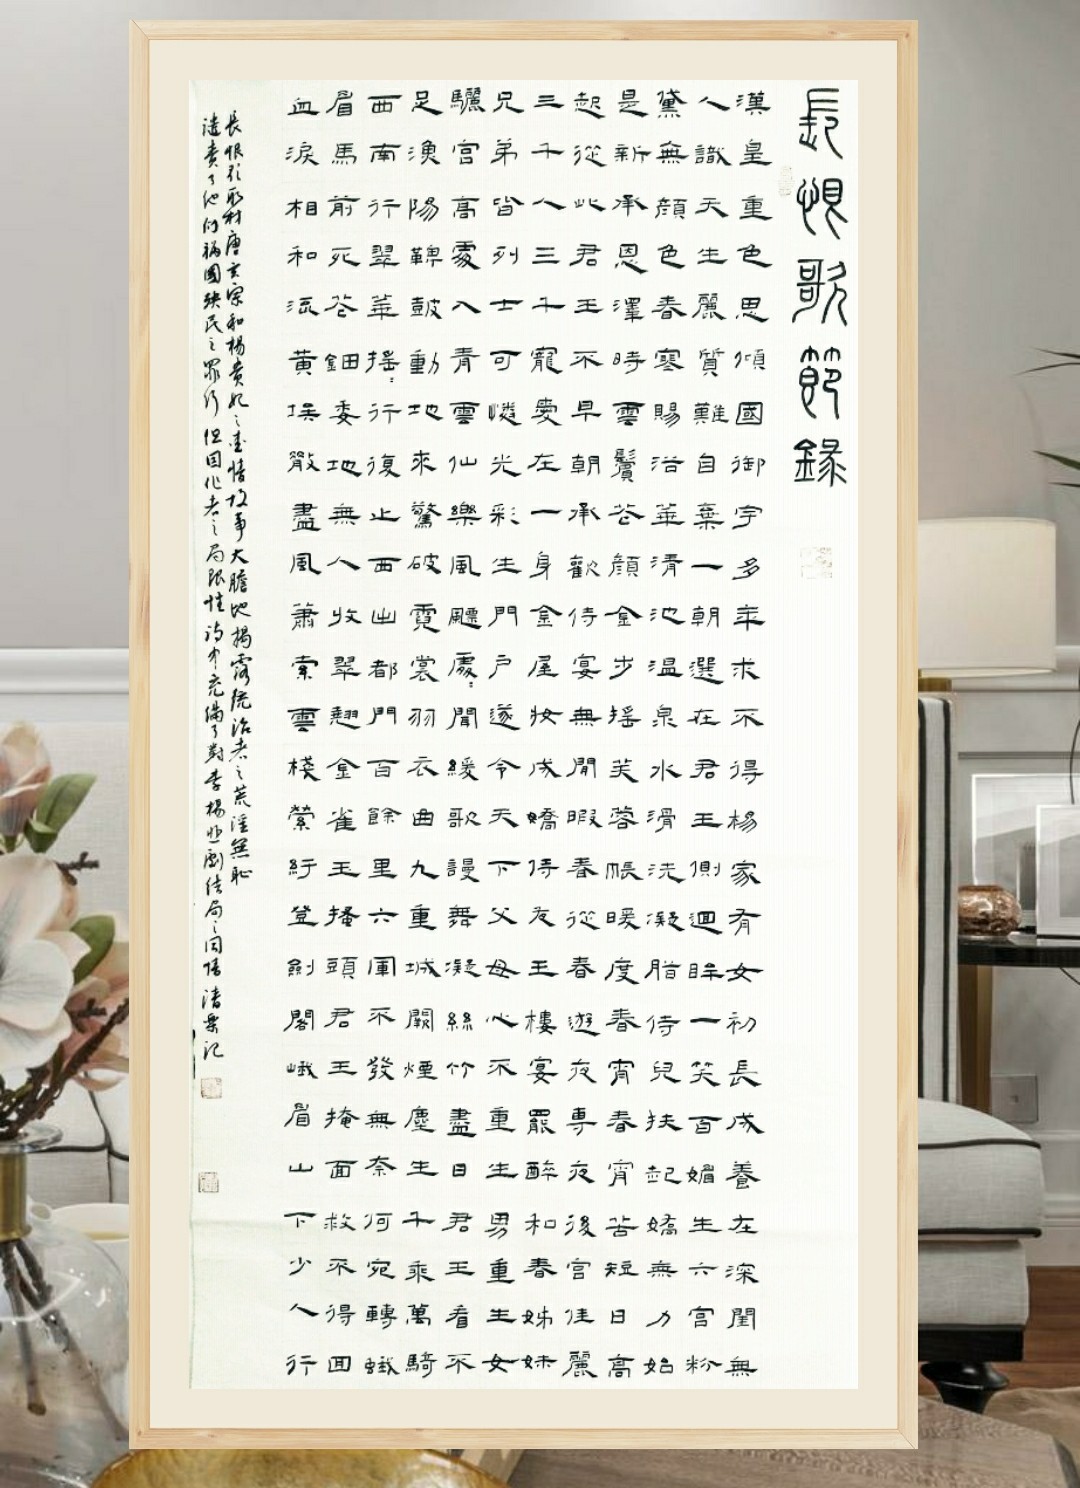 長恨歌節錄
漢皇重色思傾國御宇多年求不得楊家有女初長成養在深閨無
人識天生麗質難自棄一朝選在君王側迴眸一笑百媚生六宮粉
黛無顏色春寒賜浴華清池溫泉水滑洗凝脂侍兒扶起嬌無力始
是新承恩澤時雲鬢花顏金步搖芙蓉帳暖度春宵春宵苦短日高
起從此君王不早朝承歡侍宴無閒暇春從春遊夜專夜後宮佳麗
三千人三千寵愛在一身金屋妝成嬌侍夜玉樓宴罷醉和春姊妹
兄弟皆列士可憐光彩生門戶遂令天下父母心不重生男重生女
驪宮高處入青雲仙樂風飄處々聞緩歌謾舞凝絲竹盡日君王看不
足漁陽鞞鼓動地來驚破霓裳羽衣曲九重城闕煙塵生千乘萬騎
西南行翠華搖々行復止西出都門百餘里六軍不發無奈何宛轉蛾
眉馬前死花鈿委地無人收翠翹金雀玉搔頭君王掩面救不得回
血淚相和流黃埃散盡風蕭索雲棧縈紆登劍閣峨眉山下少人行
長恨歌取材唐玄宗和楊貴妃之愛情故事大膽地揭露統治者之荒淫無恥
譴責了他们禍國殃民之罪行但因作者之局限性詩中充滿了對李楊悲劇結局之同情 记